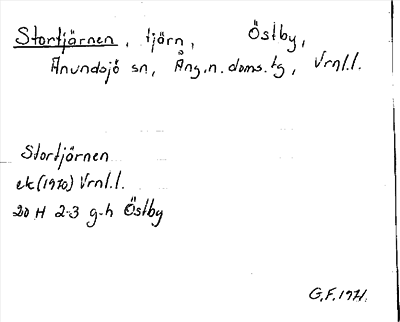 Stortjärnen, tjärn, Östby,
Anundsjö sn, Ång.n.doms.tg, Vrnl.l.
Stortjärnen
ek(1970) Vrnl.l.
20 H 2-3 g-h Östby
G.F. 1971.